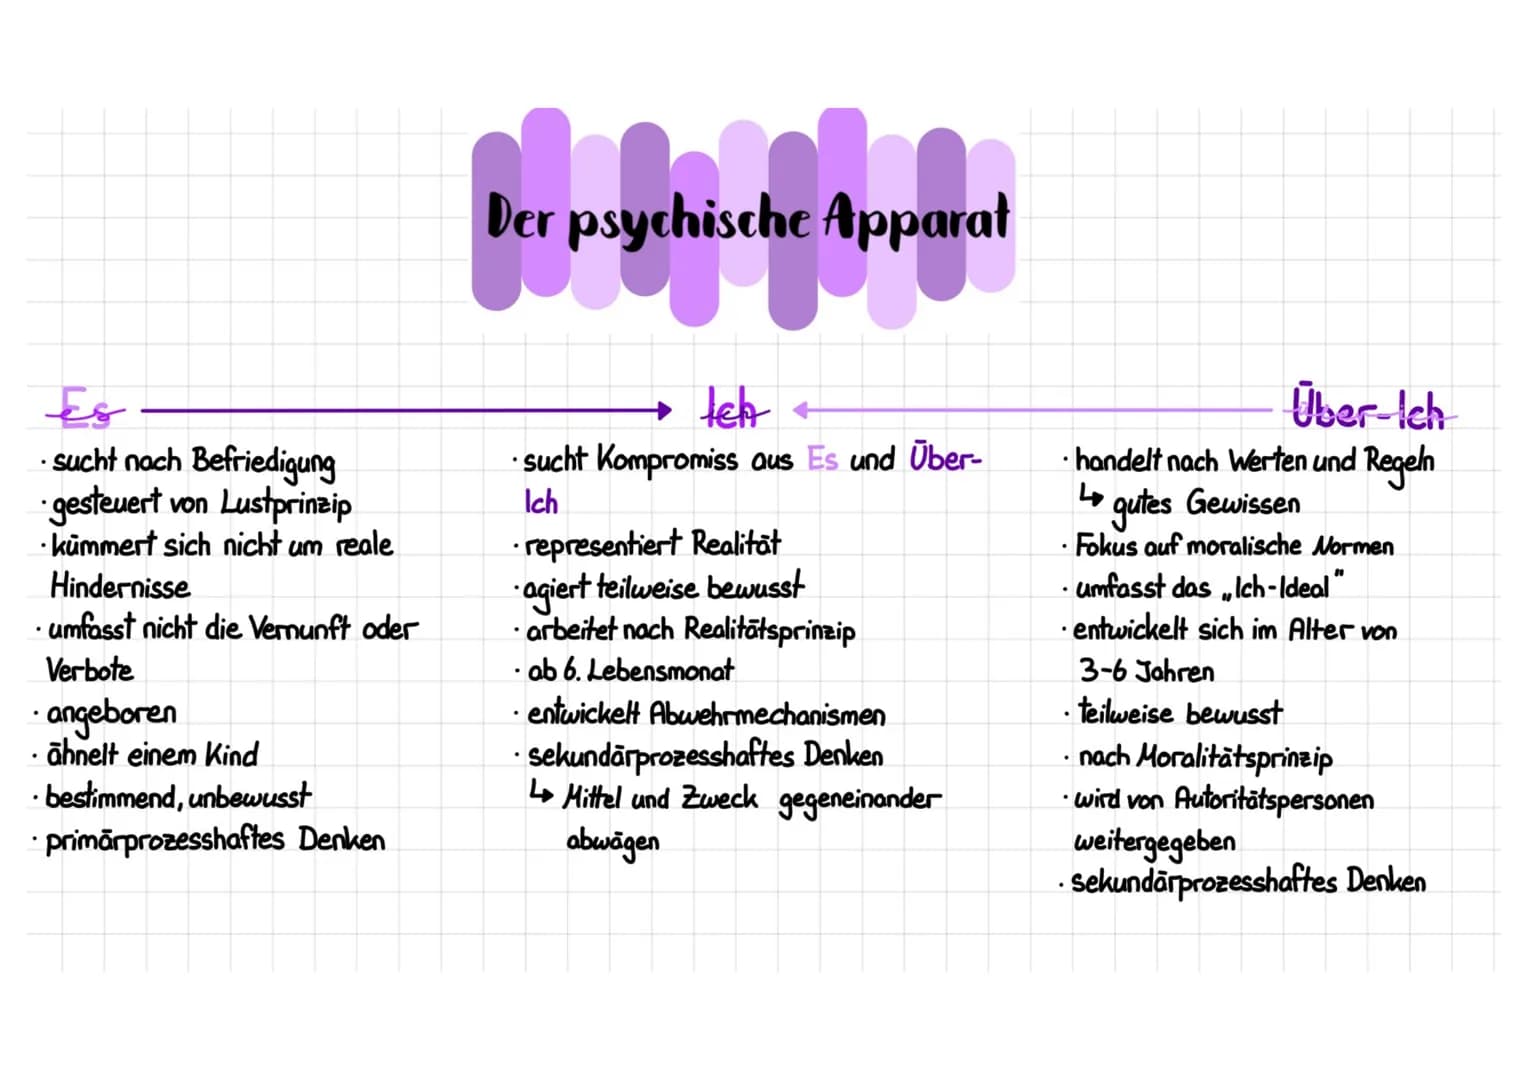 Der psychische Apparat
Es
es
· sucht nach Befriedigung
· gesteuert von Lustprinzip
· kümmert sich nicht um reale
Hindernisse
· umfasst nicht die Vernunft oder
Verbote
· angeboren
· ähnelt einem Kind
· bestimmend, unbewusst
· primärprozesshaftes Denken
Ich
ich
· sucht Kompromiss aus Es und Über-
Ich
· representiert Realität
· agiert teilweise bewusst
· arbeitet nach Realitätsprinzip
· ab 6. Lebensmonat
· entwickelt Abwehrmechanismen
· sekundärprozesshaftes Denken
↳ Mittel und Zweck gegeneinander
abwägen
Über-Ich
über-ich
· handelt nach Werten und Regeln
↳ gutes Gewissen
· Fokus auf moralische Normen
· umfasst das „Ich-Ideal"
· entwickelt sich im Alter von
3-6 Jahren
· teilweise bewusst
· nach Moralitätsprinzip
· wird von Autoritätspersonen
weitergegeben
· sekundärprozesshaftes Denken